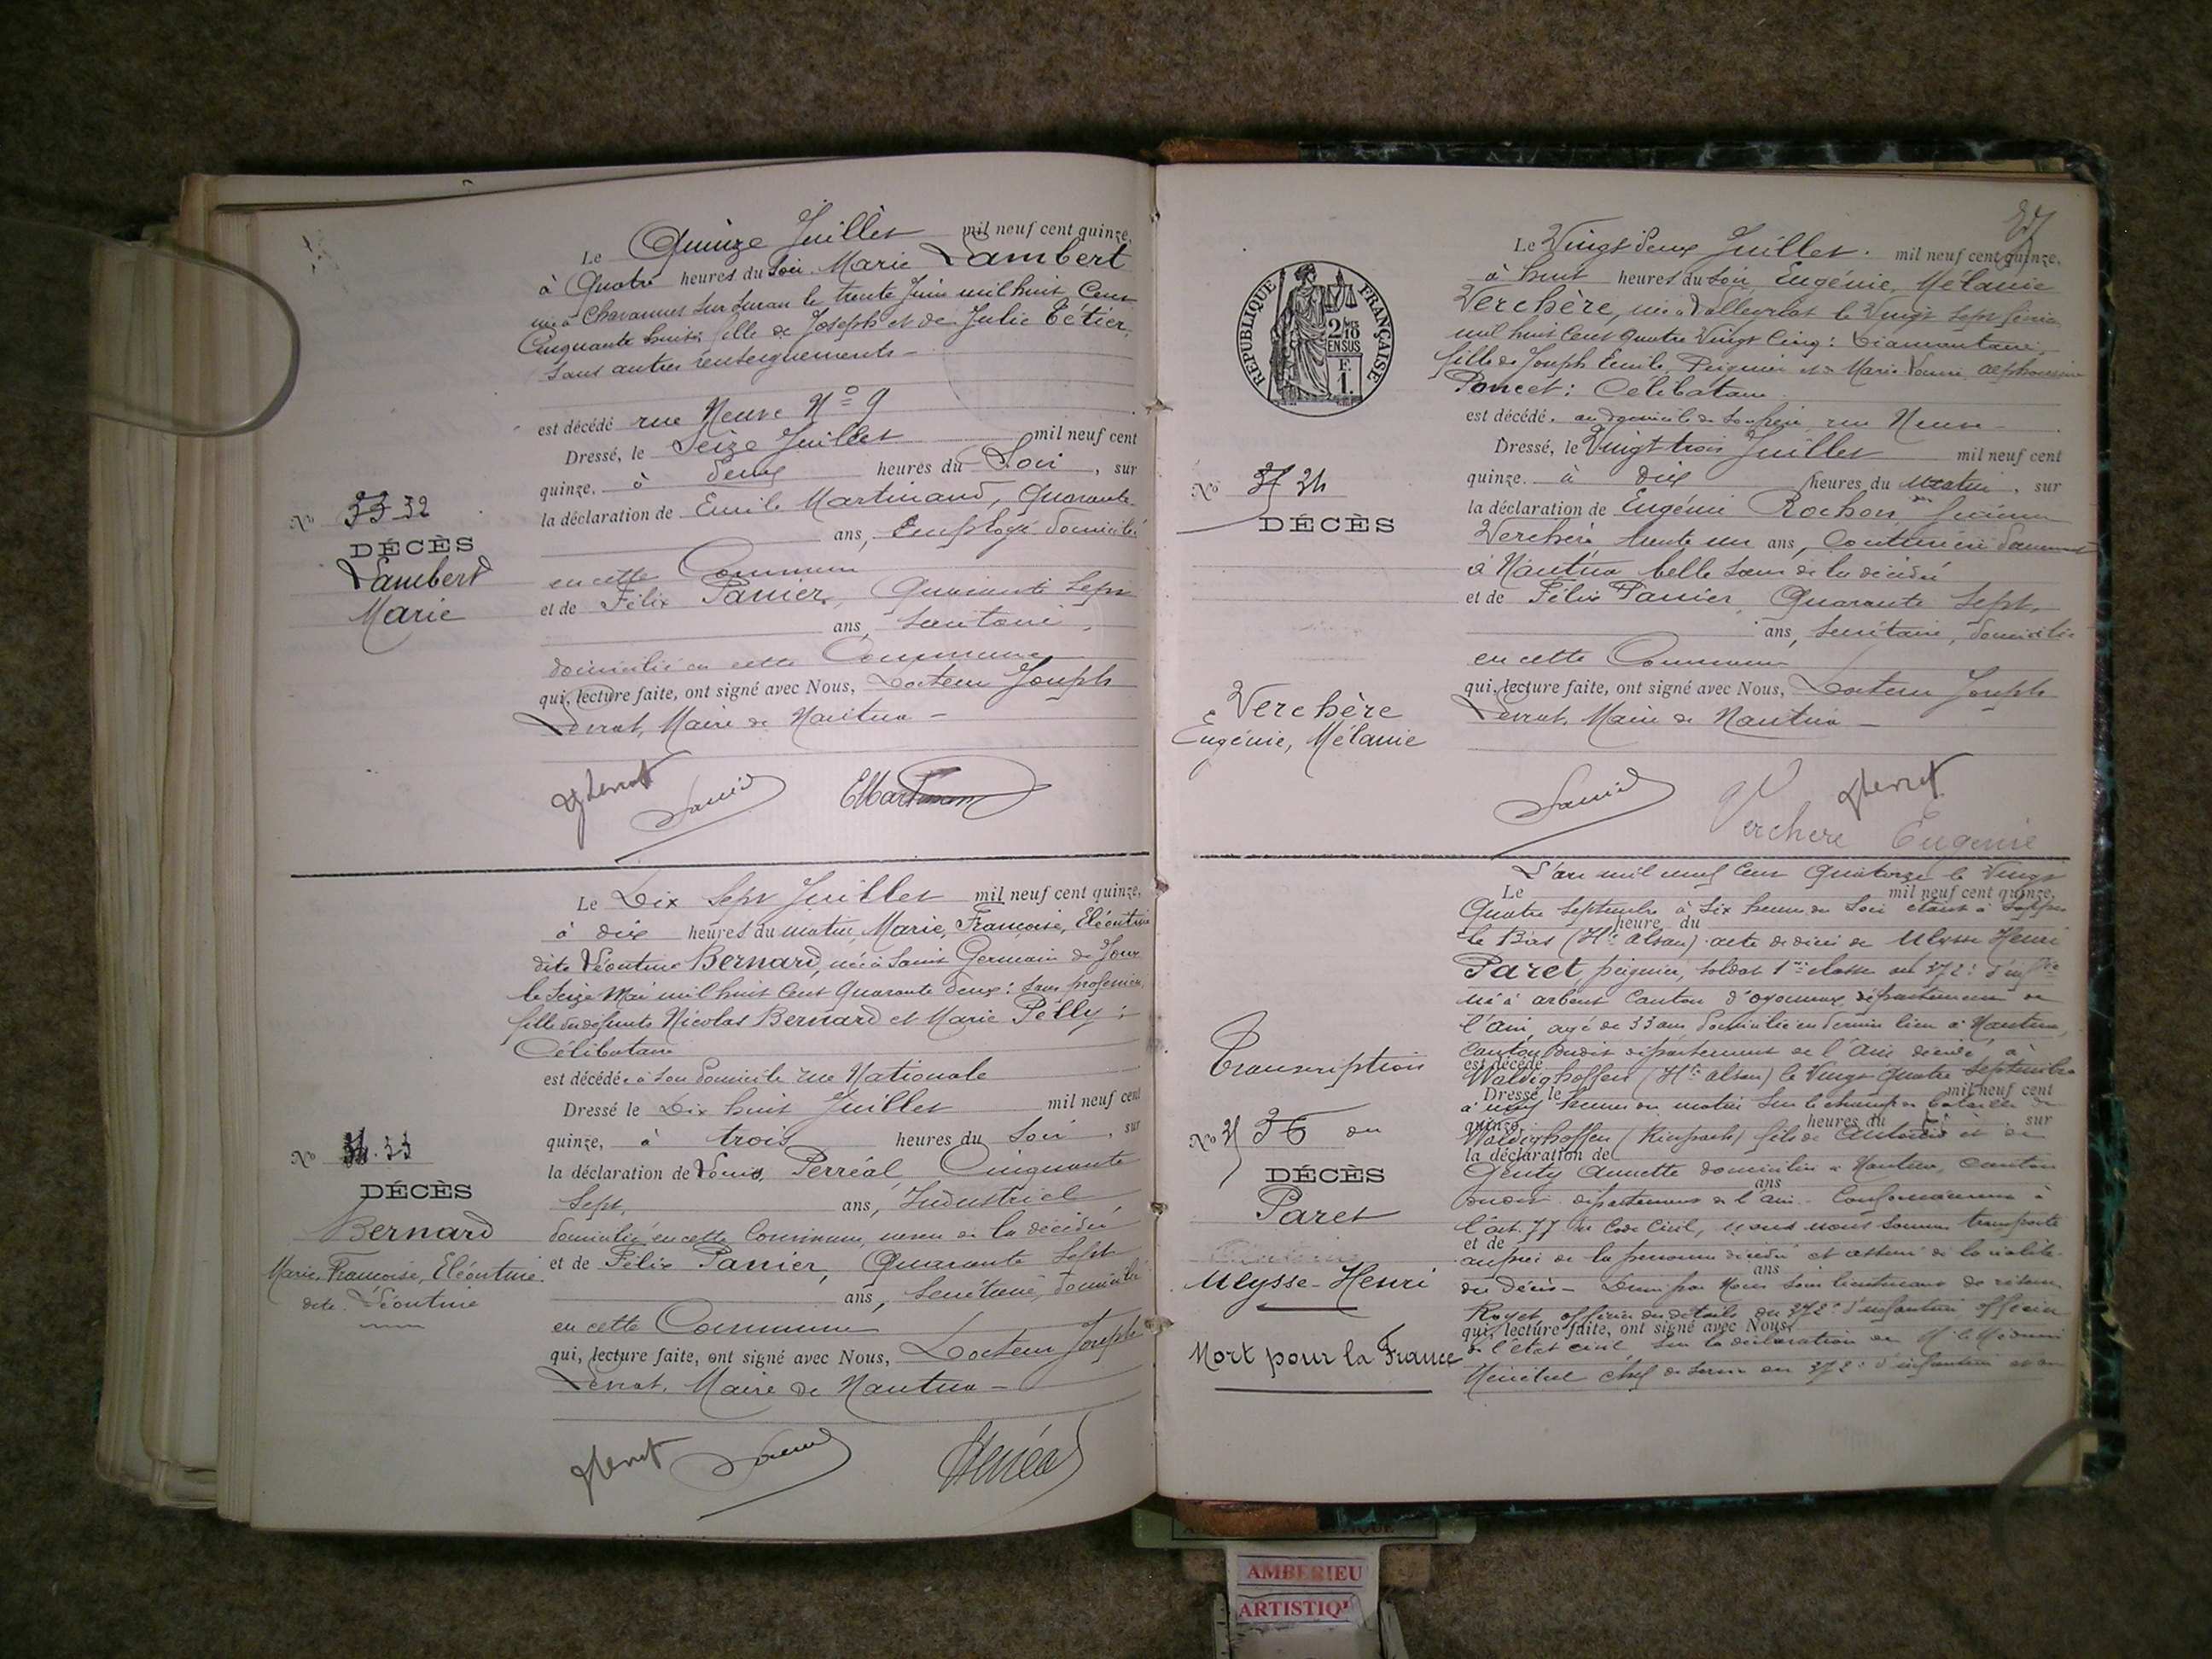 Le Quinze Juillet mil neuf cent quinze,
à Quatre heures du Soir Marie Lambert
née à Chavannes sur Suran le trente Juin mil huit Cent
Cinquante huit: fille de Joseph et de Julie Tétier,
sans autres renseignements —
est décédé rue Neuve N° 9
Dressé, le Seize Juillet mil neuf cent
quinze. à deux heures du Soir, sur
la déclaration de Emile Martinand, Quarante
ans, Employé domicilié
en cette Commune
et de Félix Panier, Quarante Sept
ans, Secrétaire,
domicilié en cette Commune
qui, lecture faite, ont signé avec Nous, Docteur Joseph
Levrat, Maire de Nantua —
N° 32
DÉCÈS
Lambert
Marie
Le Dix Sept Juillet mil neuf cent quinze,
à dix heures du matin, Marie, Françoise, Eléontine
dite Léontine Bernard, née à Saint Germain de Joux
le Seize Mai mil huit Cent Quarante deux: Sans profession,
fille des défunts Nicolas Bernard et Marie Pelly:
Célibataire
est décédée à son domicile rue Nationale
Dressé le Dix huit Juillet mil neuf cent
quinze, à trois heures du Soir, sur
la déclaration de Louis Perréal, Cinquante
Sept, ans, Industriel
domicilié en cette Commune, neveu de la décédée
et de Félix Panier, Quarante Sept
ans, Secrétaire, domicilié
en cette Commune
qui, lecture faite, ont signé avec Nous, Docteur Joseph
Levrat, Maire de Nantua —
N° 33
DÉCÈS
Bernard
Marie, Françoise, Eléontine
dite Léontine
RÉPUBLIQUE FRANÇAISE
Le Vingt deux Juillet. mil neuf cent quinze.
à huit heures du Soir, Eugénie, Mélanie
Verchère, née à Volleyriat le Vingt Sept
mil huit Cent Quatre Vingt Cinq: Diamantaire,
fille de Joseph Emile, Peignier et de Marie
Poncet: Célibataire
est décédé. au domicile de rue Neuve
Dressé, le Vingt trois Juillet mil neuf cent
quinze. à dix heures du matin, sur
la déclaration de Eugénie Rochon
Verchère trente un ans, Couturière
à Nantua belle soeur de la décédée
et de Félix Panier, Quarante Sept,
ans, Secrétaire, domicilié
en cette Commune
qui, lecture faite, ont signé avec Nous, Docteur Joseph
Levrat, Maire de Nantua —
Verchere Eugénie
N° 34
DÉCÈS
Verchère
Eugénie, Mélanie
L'an mil neuf Cent Quatorze le Vingt
Le mil neuf cent quinze,
Quatre Septembre à Six heures du Soir étant à
heure du
le Bas (Hte Alsace) acte de décès de Ulysse Henri
Paret peignier, soldat 1ère classe au 372e d'infrie
né à Arbent Canton d'Oyonnax, département de
l'Ain, agé de 33 ans domicilié en dernier lieu à Nantua,
Canton dudit département de l'Ain décédé, à
est décédé
Waldighoffen (Hte Alsace) le Vingt Quatre Septembre
Dressé le mil neuf cent
à neuf heures du matin sur le champ de bataille de
quinze, heures du sur
Waldighoffen fils de et de
la déclaration de
Genty Annette domiciliés à Nantua, Canton
ans
dudit département de l'Ain. Conformément à
l'art. 77 du Code Civil, nous nous sommes transporté
et de
auprès de la personne décédée et assuré de la réalité
ans
du Décès —
Royet, officier des détails du 372e d'infanterie officier
qui, lecture faite, ont signé avec Nous,
de l'état civil, sur la déclaration de
chef de au 372e d'infanterie et
Transcription
N° 36
DÉCÈS
Paret
Ulysse-Henri
Mort pour la France
AMBERIEU
ARTISTIQ